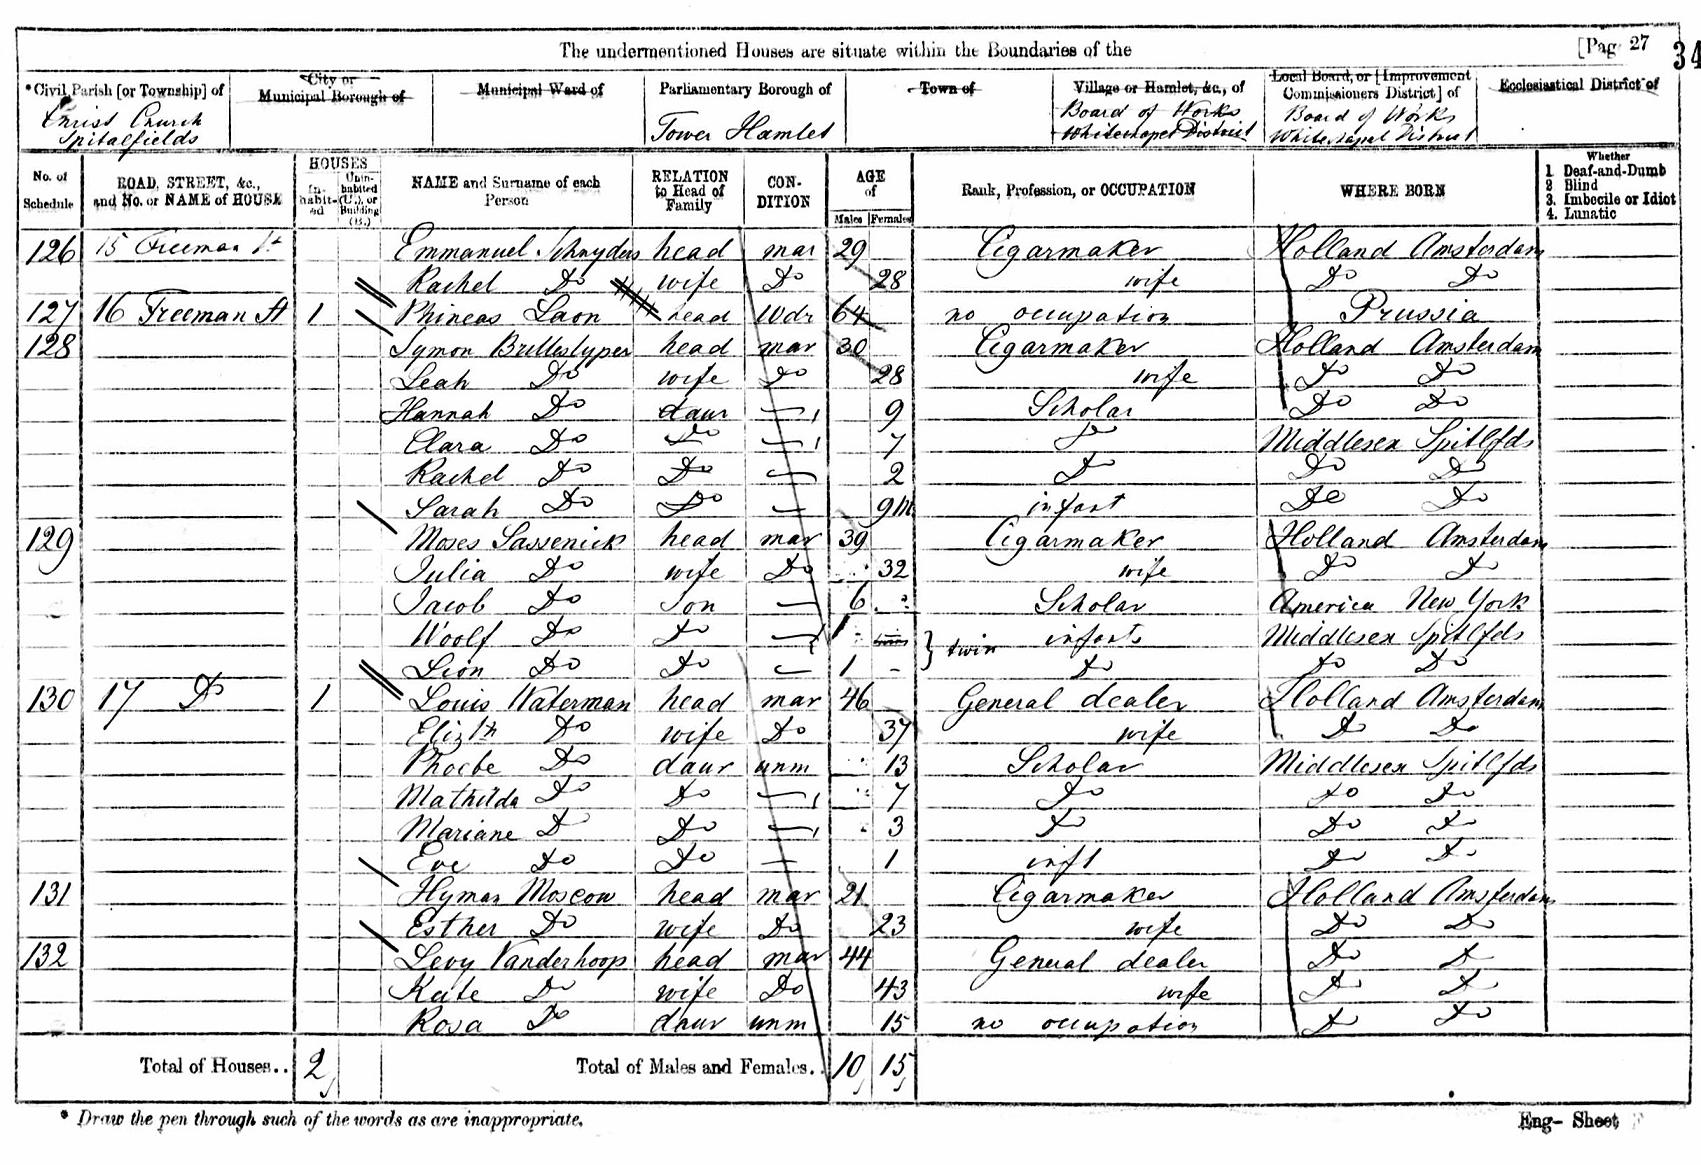 The undermentioned Houses are situate within the Boundaries of the [Pag 27
34
*Civil Parish [or Township] of City or Municipal Borough of Municipal Ward of Parliamentary Borough of Town of Village or Hamlet, &c., of Local Board, or [Improvement Commissioners District] of Ecclesiastical District of
Christ Church Spitalfields Tower Hamlet Board of Works Whitechapel District Board of Works Whitechapel District
No. of Schedule ROAD, STREET, &c., and No. or NAME of HOUSE HOUSES In-habit-ed Unin-habited (U.), or Building (B.) NAME and Surname of each Person RELATION to Head of Family CON-DITION AGE of Males Females Rank, Profession, or OCCUPATION WHERE BORN Whether 1. Deaf-and-Dumb 2 Blind 3. Imbecile or Idiot 4. Lunatic
126 15 Freeman St Emmanuel Schnyders head mar 29 Cigarmaker Holland Amsterdam
Rachel Do wife Do 28 wife Do Do
127 16 Freeman St 1 Phineas Laon head Wdr 64 no occupation Prussia
128 Symon Brilleslyper head mar 30 Cigarmaker Holland Amsterdam
Leah Do wife Do 28 wife Do Do
Hannah Do daur — 9 Scholar Do Do
Clara Do Do — 7 Do Middlesex Spitlfds
Rachel Do Do — 2 Do Do Do
Sarah Do Do — 9m infant Do Do
129 Moses Sassenick head mar 39 Cigarmaker Holland Amsterdam
Julia Do wife Do 32 wife Do Do
Jacob Do Son — 6 Scholar America New York
Woolf Do Do — 1 } twin infants Middlesex Spitlfds
Lion Do Do — 1 - Do Do Do
130 17 Do 1 Louis Waterman head mar 46 General dealer Holland Amsterdam
Elizth Do wife Do 37 wife Do Do
Phoebe Do daur unm 13 Scholar Middlesex Spitlfds
Mathilda Do Do — 7 Do Do Do
Mariane Do Do — 3 Do Do Do
Eve Do Do — 1 inft Do Do
131 Hyman Moscow head mar 21 Cigarmaker Holland Amsterdam
Esther Do wife Do 23 wife Do Do
132 Levy Vanderhoop head mar 44 General dealer Do Do
Kate Do wife Do 43 wife Do Do
Rosa Do daur unm 15 no occupation Do Do
Total of Houses.. 2 Total of Males and Females.. 10 15
* Draw the pen through such of the words as are inappropriate. Eng- Sheet